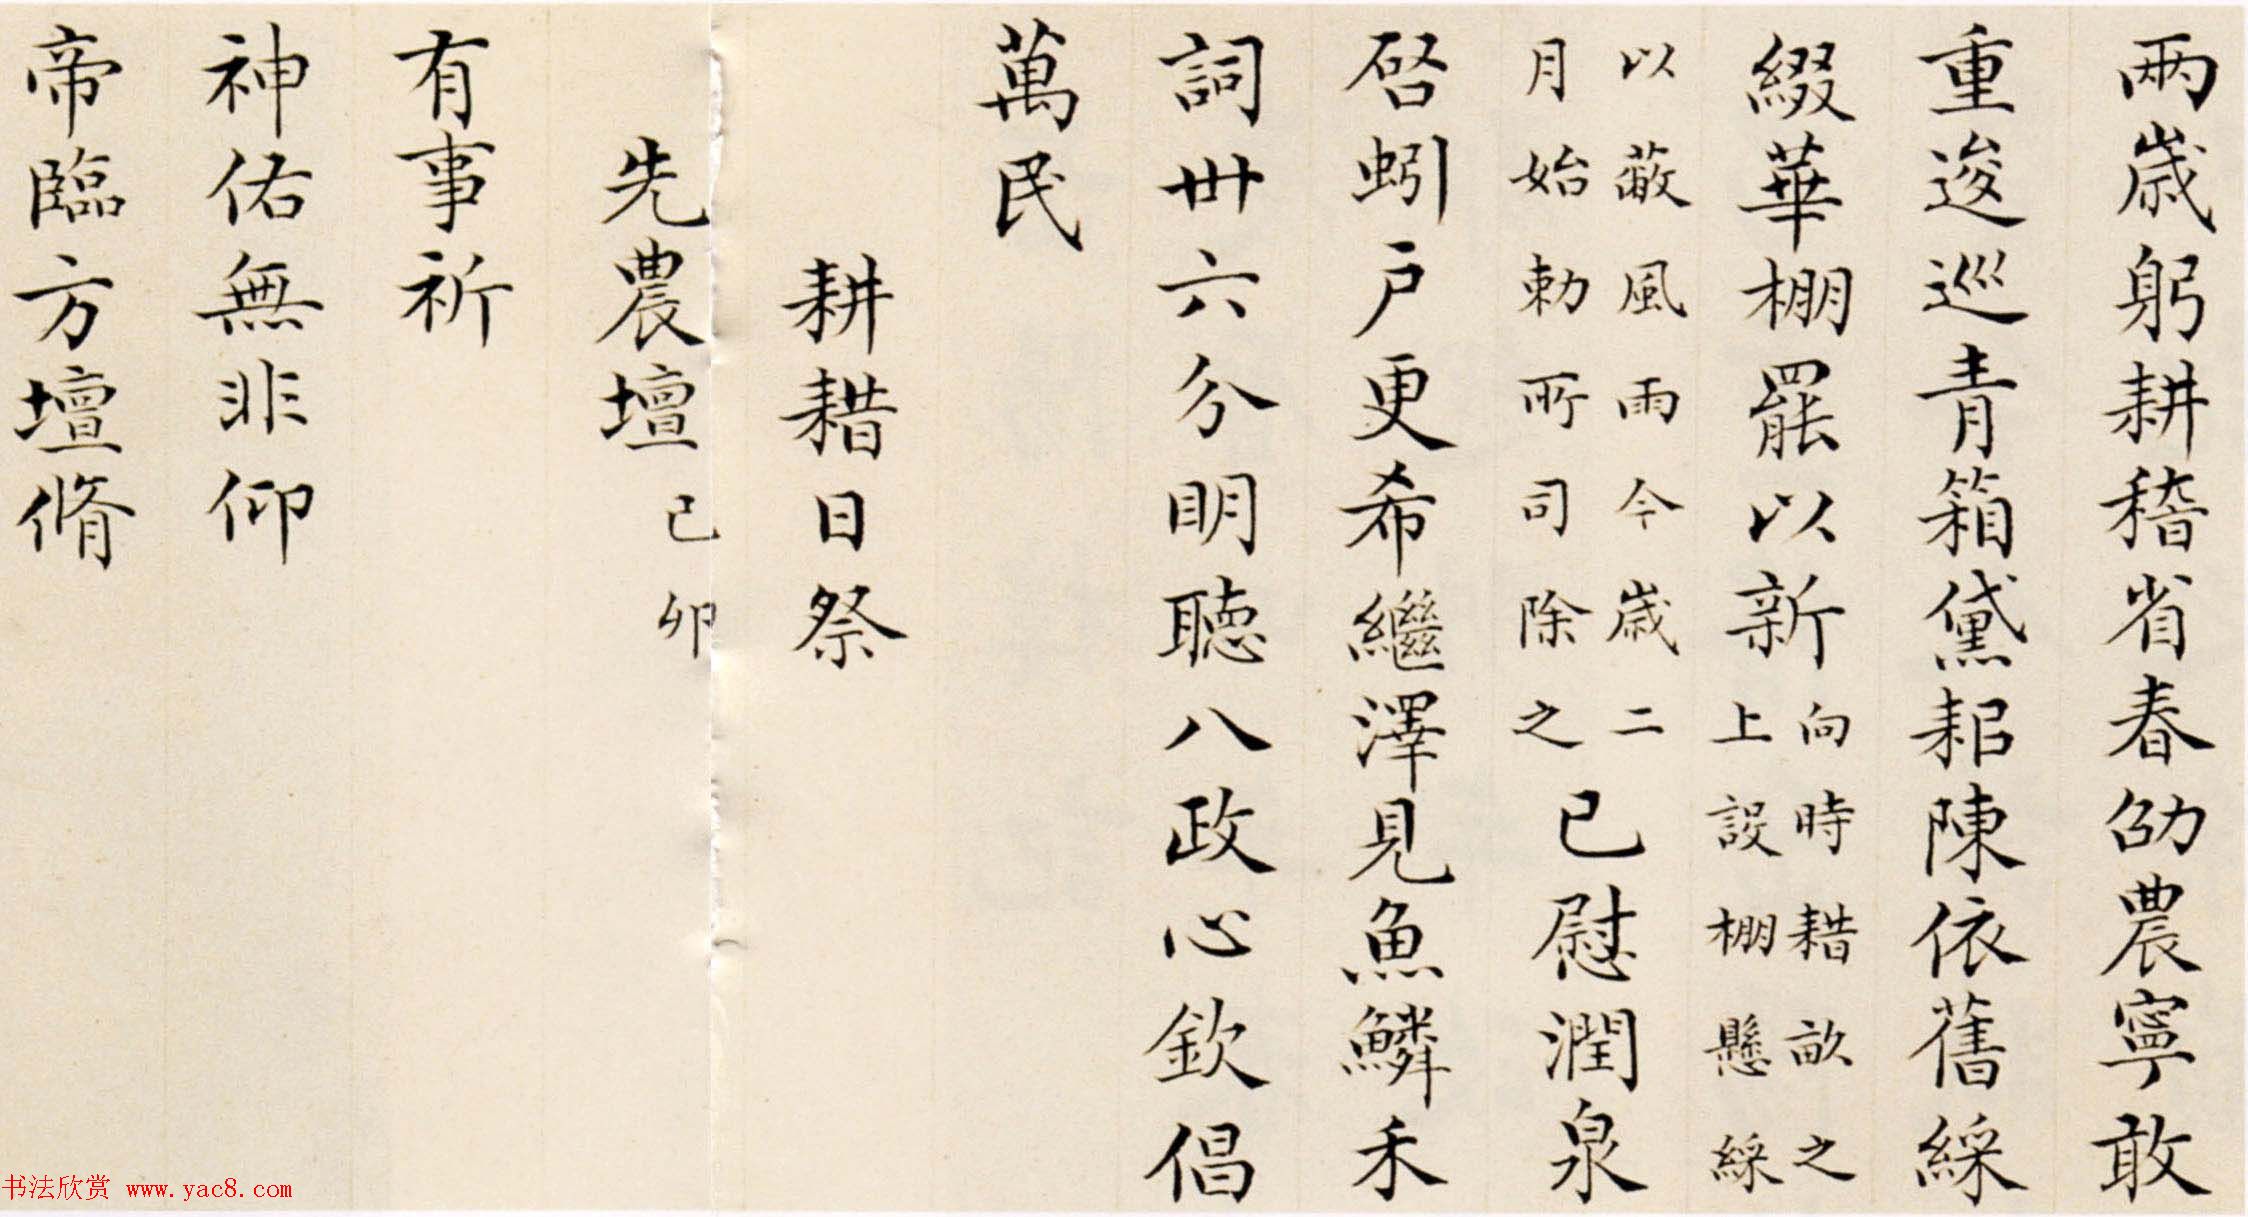 兩歲躬耕稽省春劭農寧敢
重逡巡青箱黛耜陳依舊綵
綴華棚罷以新向時耤畝之
上設棚懸綵
以蔽風雨今歲二
月始勅所司除之已慰潤泉
启蚓戶更希繼澤見魚鱗禾
詞卅六分明聽八政心欽倡
萬民
耕耤日祭
先農壇己卯
有事祈
神佑無非仰
帝臨方壇脩
书法欣赏 www.yac8.com